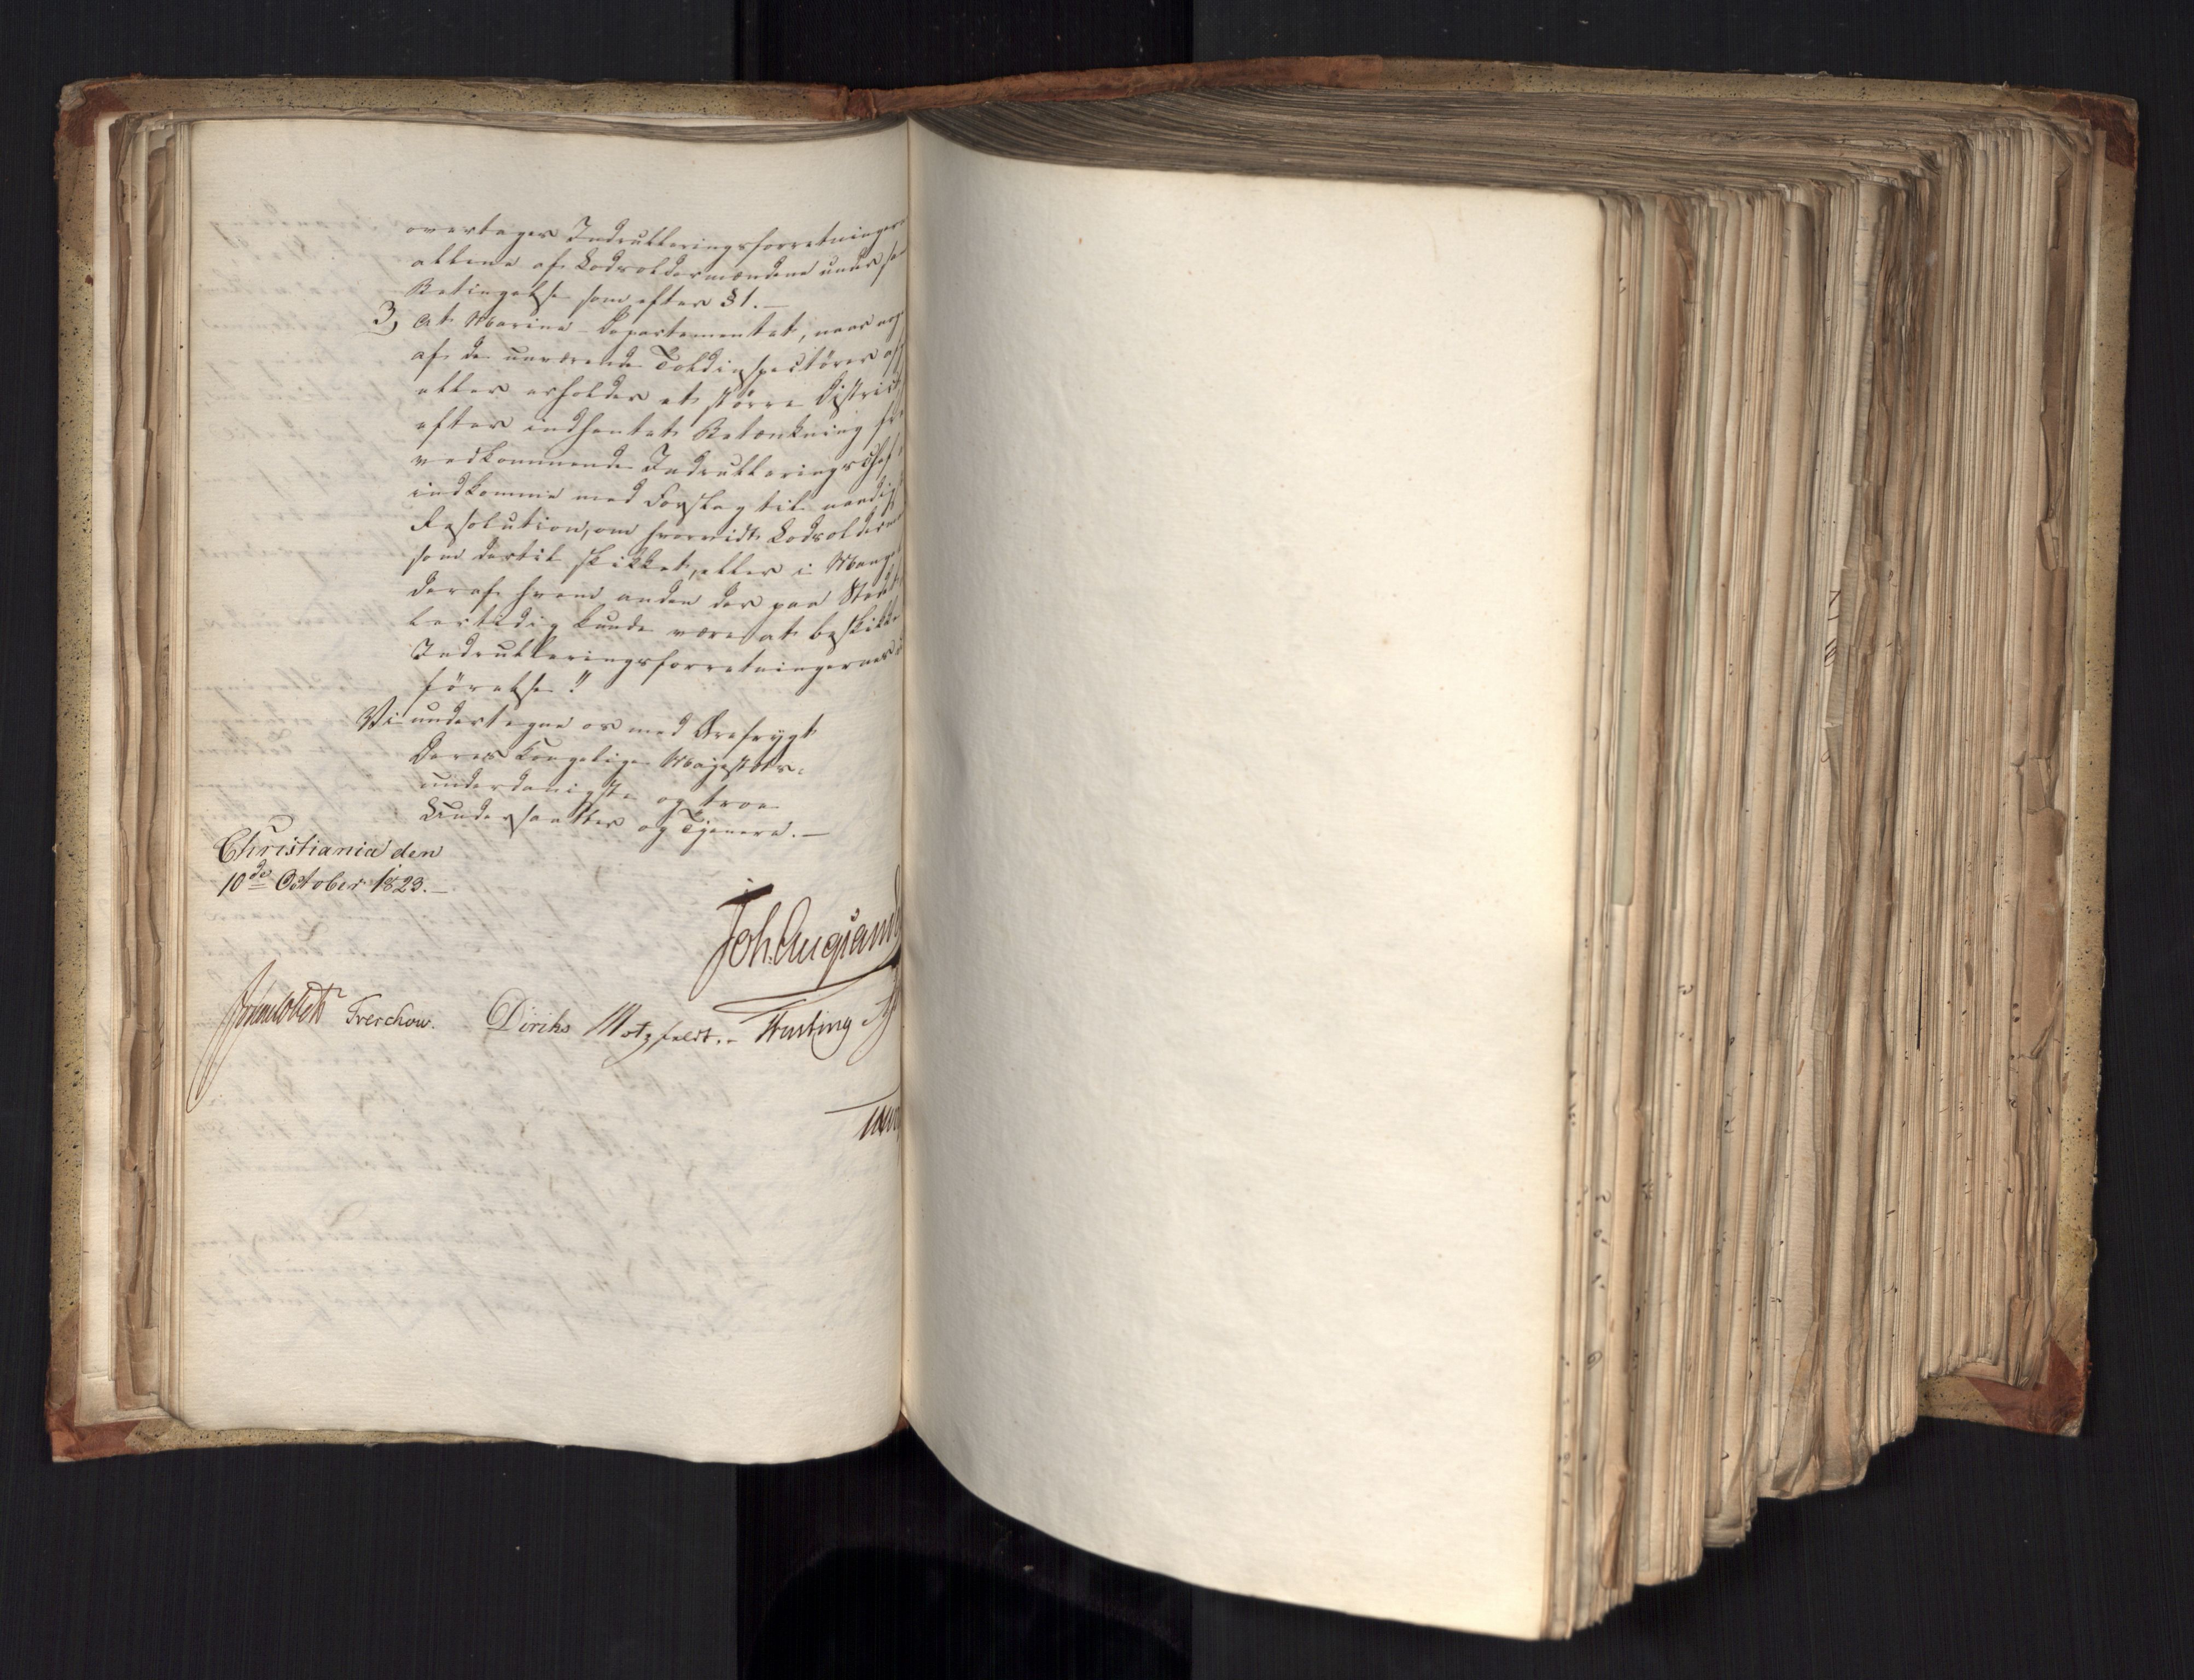 overtages Indrulleringsforretningers
allene af Lodsoldermændene under sa
Betingelse som efter § 1. —
3, At Marine-Departementet, naar nog
af de nuværende Toldinspecteurer af
eller erholder et større District
efter indhentet Betænkning fr
vedkommende Indrulleringschef
indkomme med Forslag til naadig
Resolution, om hvorvidt Lodsolderm
som dertil skikket, eller i Mangel
deraf hvem anden der paa Stedet
bestedig kunde være at beskikke
Indrulleringsforretningernes
førelse."
Vi undertegne os med Ærefrygt
Deres Kongelige Majestæts.
underdanigste og troe
Undersaatter og Tjenere. —
Christiania den
10de October 1823. —
Treschow. Diriks Motzfeldt. Fasting